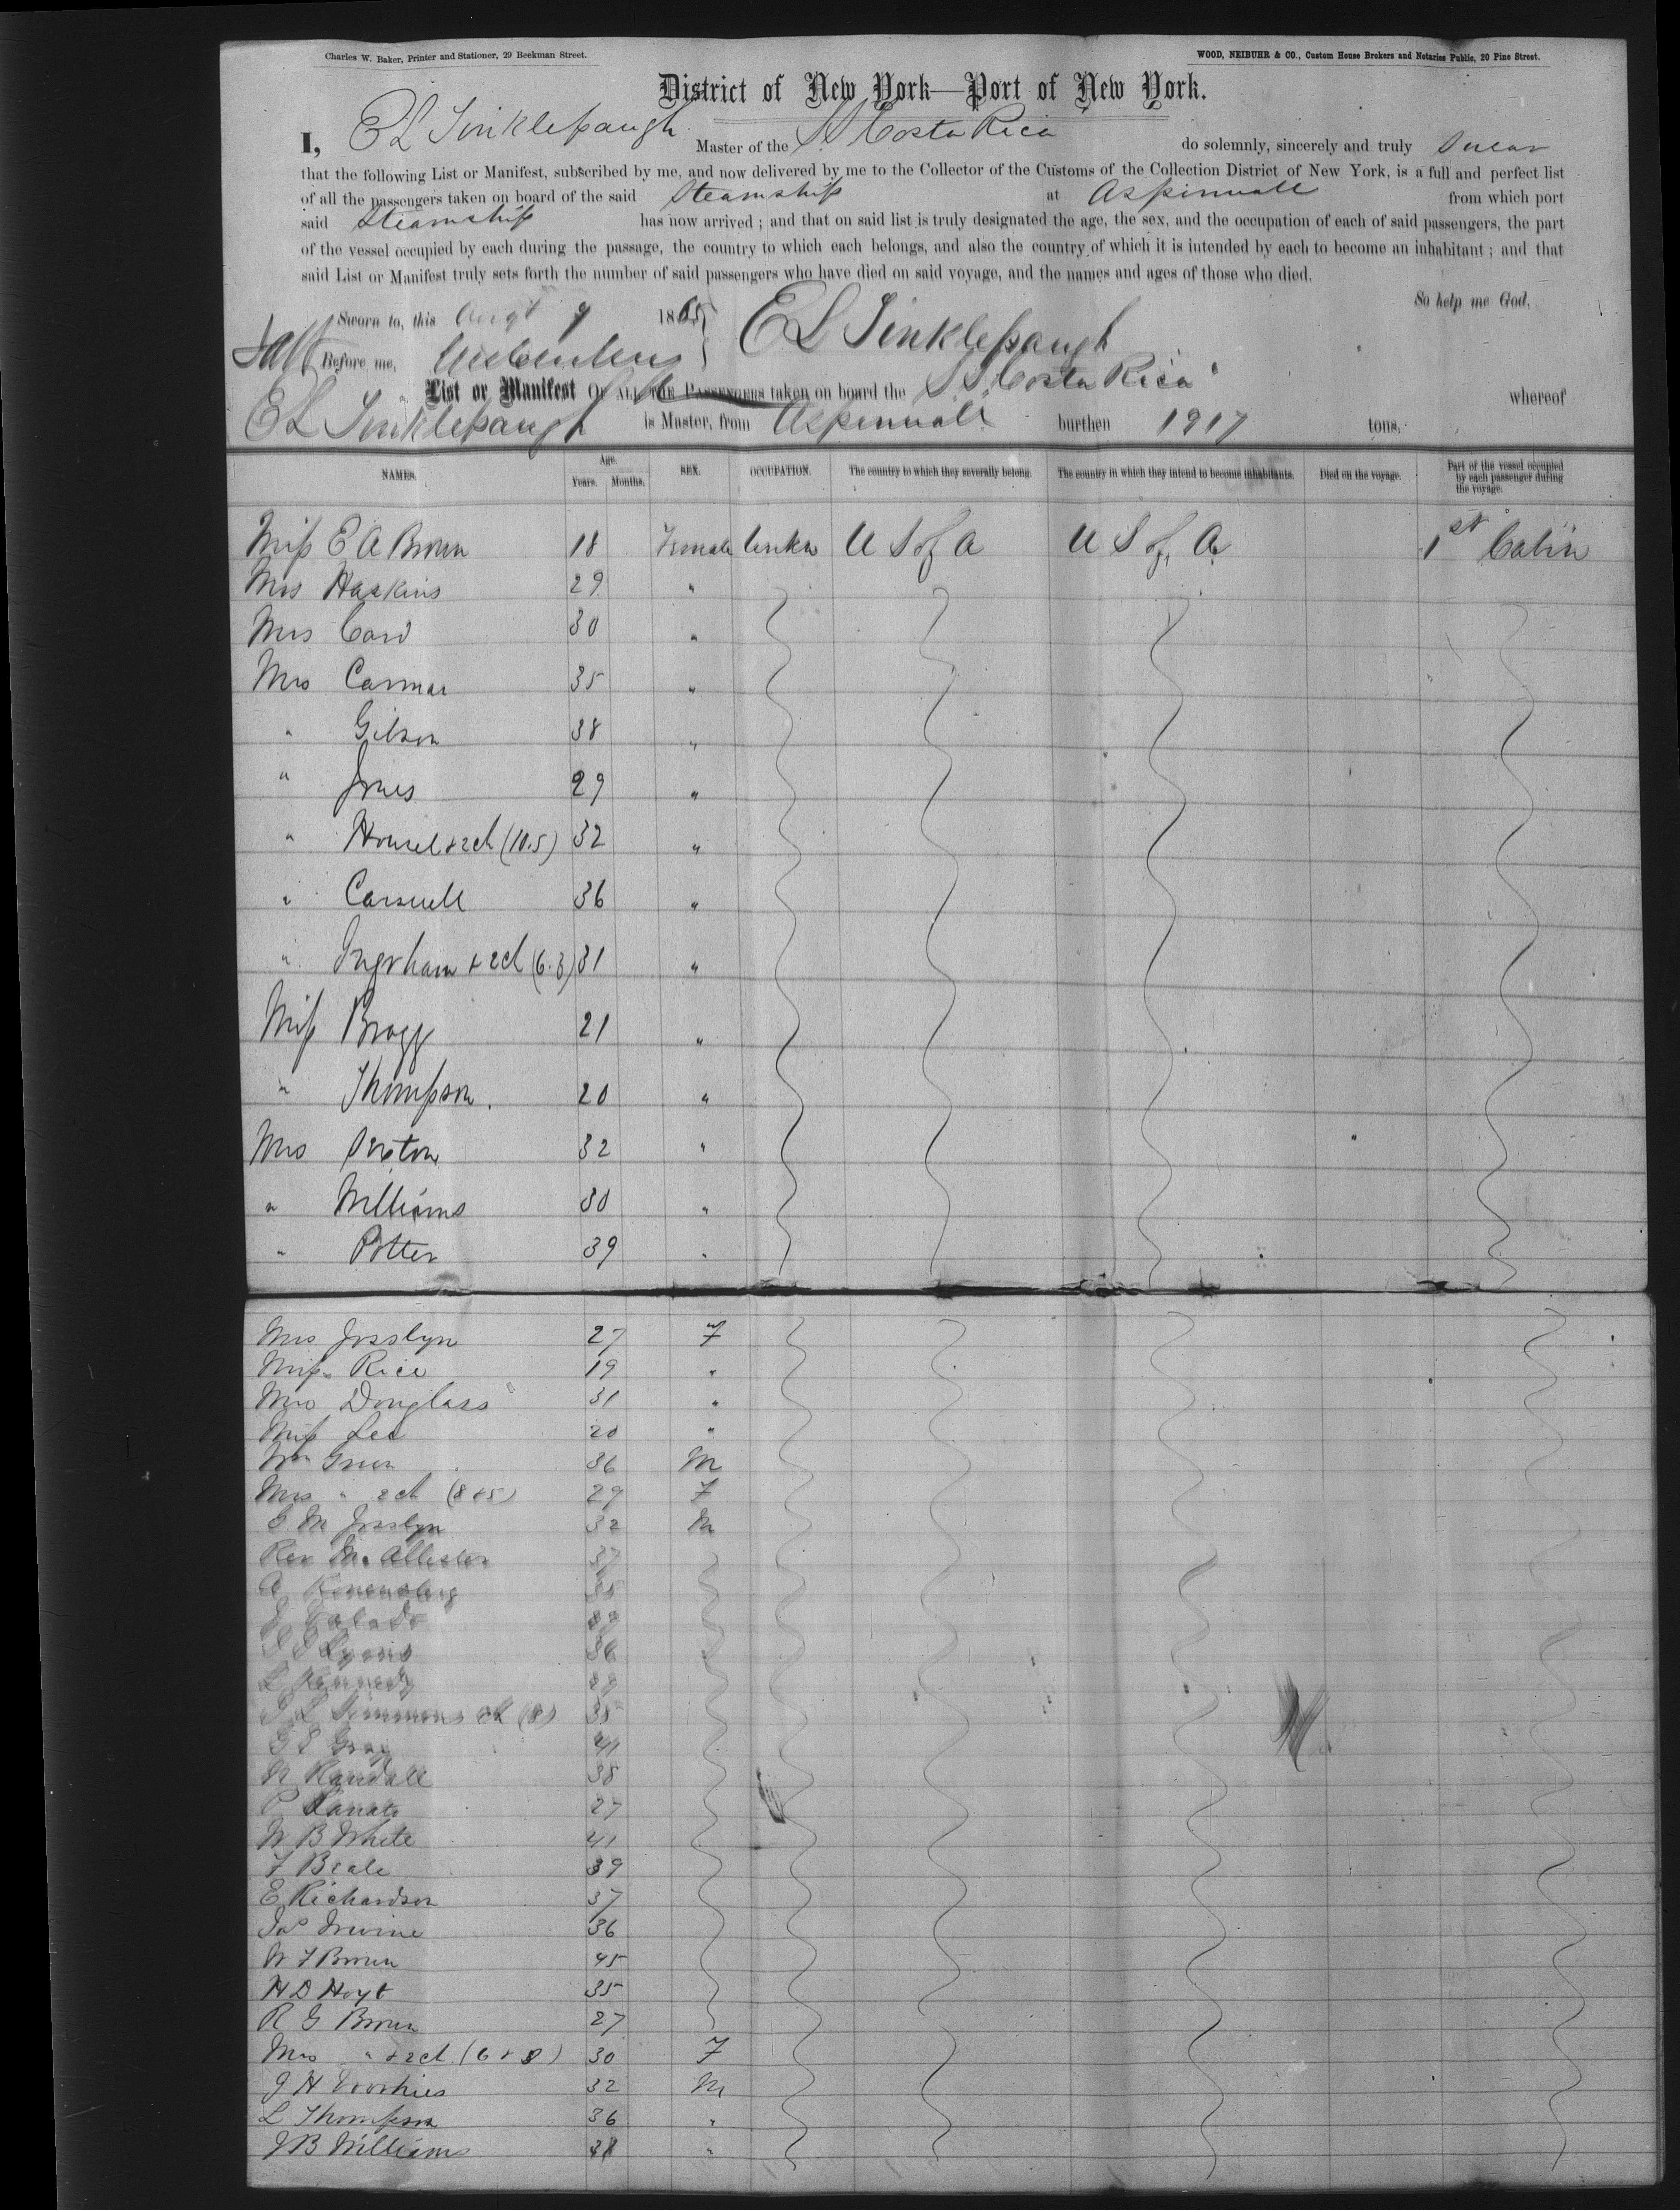 Charles W. Baker, Printer and Stationer, 29 Beekman Street.
WOOD, NEIBUHR & CO., Custom House Brokers and Notaries Public, 20 Pine Street.
District of New York—Port of New York.
I, E L Tinklepaugh Master of the SS Costa Rica do solemnly, sincerely and truly swear
that the following List or Manifest, subscribed by me, and now delivered by me to the Collector of the Customs of the Collection District of New York, is a full and perfect list
of all the passengers taken on board of the said Steamship at Aspinwall from which port
said Steamship has now arrived ; and that on said list is truly designated the age, the sex, and the occupation of each of said passengers, the part
of the vessel occupied by each during the passage, the country to which each belongs, and also the country of which it is intended by each to become an inhabitant ; and that
said List or Manifest truly sets forth the number of said passengers who have died on said voyage, and the names and ages of those who died.
So help me God.
Sworn to, this Augt 9 1865
E L Tinklepaugh
Before me,
List or Manifest OF ALL THE PASSENGERS taken on board the SS "Costa Rica" whereof
E L Tinklepaugh is Master, from Aspinwall burthen 1917 tons.
NAMES. Age. Years. Months. SEX. OCCUPATION. The country to which they severally belong. The country in which they intend to become inhabitants. Died on the voyage. Part of the vessel occupied by each passenger during the voyage.
Miss E A Brown 18 Female U S of A U S of A 1st Cabin
Mrs Haskins 29 "
Mrs Card 30 "
Mrs Carmar 35 "
" Gibson 38 "
" Jones 29 "
" Housel & 2 ch (10.5) 32 "
" Carswell 36 "
" Ingraham & 2 ch (6.3) 31 "
Miss Bragg 21 "
" Thompson. 20 "
Mrs Sexton 32 "
" Williams 30 "
" Potter 39 "
Mrs Josslyn 27 F
Miss Rice 19 "
Mrs Douglass 31 "
Miss Lee 20 "
Wm Green 36 M
Mrs " 2 ch (8 & 5) 29 F
G M Josslyn 32 M
Rev McAllister 37
A 35
S I Lyons 36
L Kennedy 29
Simmons ch (8) 35
G E Gray 41
N Randall 38
P 27
W B White 41
F Beale 39
E Richardson 37
Jas Irvine 36
W F Brown 45
H D Hoyt 35
R G Brown 27
Mrs " & 2 ch (6 & 8) 30 F
J H Voorhies 32 M
L Thompson 36 "
J B Williams 38 "